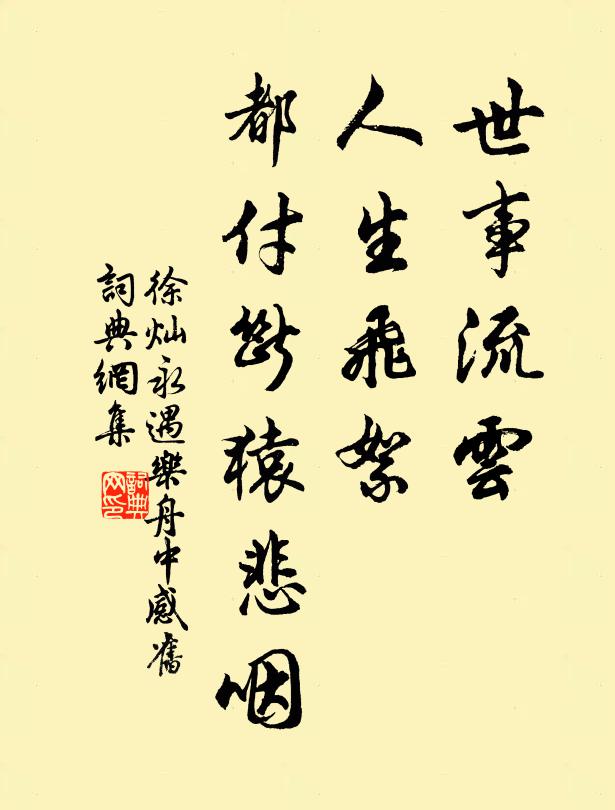 世事流雲
人生飛絮
都付断猿悲咽
徐灿永遇樂舟中感舊
詞典網集
詞典